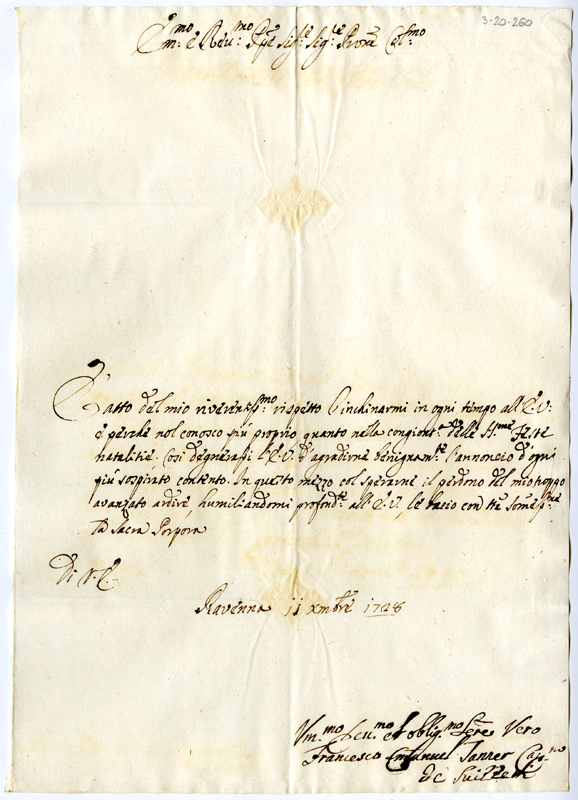 3-20-260
Em:mo e Rev:mo Ppe Sig:re Sig:re Prone Col:mo
E atto del mio riverentiss:mo rispetto l'inchinarmi in ogni tempo all'E.V:
e perche nol conosco più proprio quanto nella congiont:a delle SS:me Feste
natalitie. Così degnerasi l'E.V. d'agradirne benignam:te l'annoncio d'ogni
più sospirato contento. In questo mezzo col sperarne il perdono del mio troppo
avanzato ardire, humiliandomi profond:te all'E.V. le bacio con tta
la Sacra Porpora
Di V.E.
Ravenna 11 xmbre 1728
Vm:mo Dev:mo et oblig:mo Sere Vero
Francesco Emanuel Tanner Cap:no
de Suizzeri